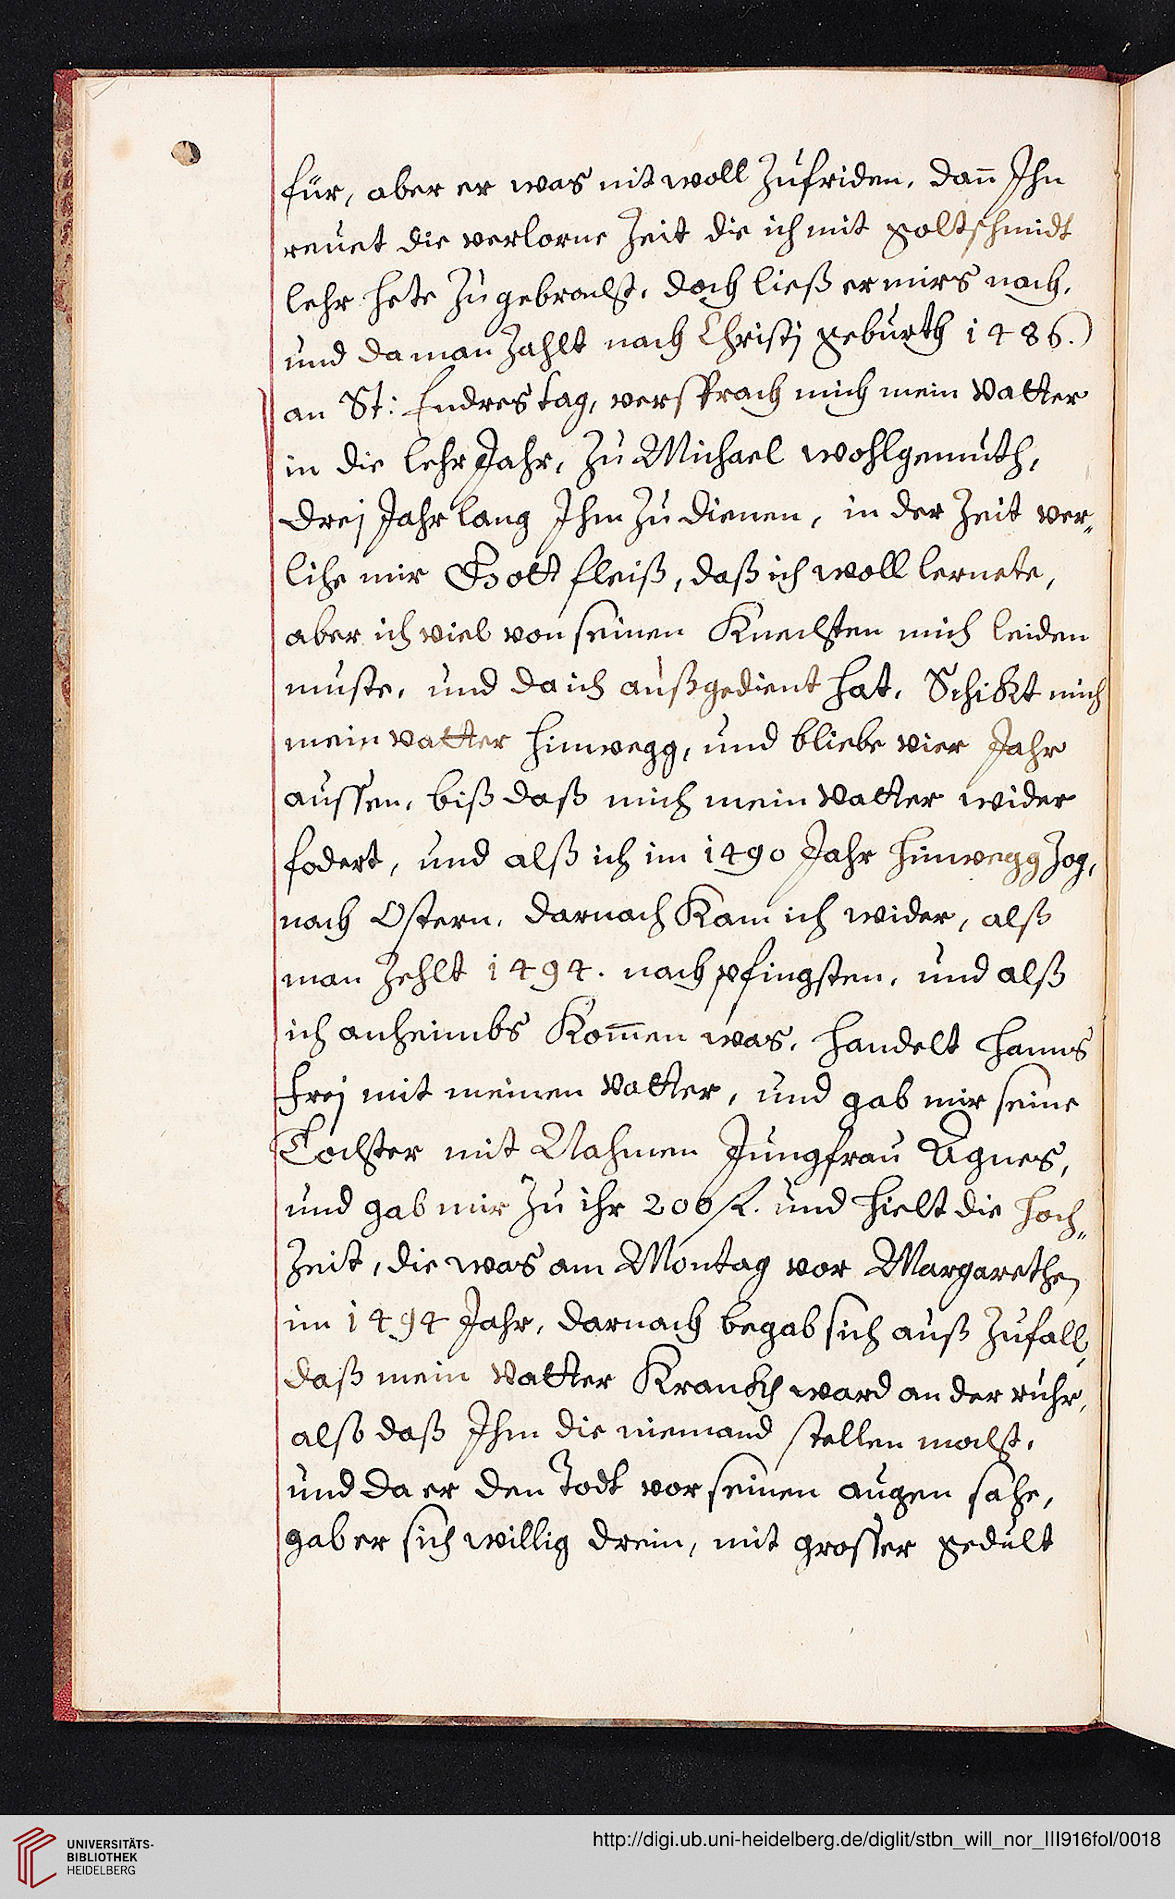 für, aber er was nit woll Zufriden, dañ Ihn
reuet die verlorne Zeit die ich mit goltschmidt
lehr hete Zugebracht, doch ließ er mirs nach,
und da man Zahlt nach Christj geburth 1486.)
an St: Endres tag, versprach mich mein Vatter
in die lehr Jahr, Zu Michael Wohlgemuth,
drej Jahr lang Ihm Zu dienen, in der Zeit ver„
lihe mir Gott fleiß, daß ich woll lernete,
aber ich viel von seinen Knechten mich leiden
muste, und da ich außgedient hat, Schikt mich
mein Vatter hinwegg, und bliebe vier Jahr
aussen, biß daß mich mein Vatter wider
fodert, und alß ich im 1490 Jahr hinwegg Zog,
nach Ostern, darnach Kam ich wider, alß
man Zehlt 1494. nach pfingsten, und alß
ich anheimbs Kom̄en was, handelt Hanns
Frej mit meinen Vatter, und gab mir seine
Tochter mit Nahmen Jungfrau Agnes,
und gab mir Zu ihr 200 fl. und hielt die Hoch„
Zeit, die was am Montag vor Margarethen
im 1494 Jahr, darnach begab sich auß Zufall,
daß mein Vatter Krankh ward an der ruhr,
also daß Ihm die niemand stellen macht,
und da er den Todt vor seinen augen sahe,
gab er sich willig drein, mit grosser gedult
UNIVERSITÄTS-
BIBLIOTHEK
HEIDELBERG
http://digi.ub.uni-heidelberg.de/diglit/stbn_will_nor_III916fol/0018